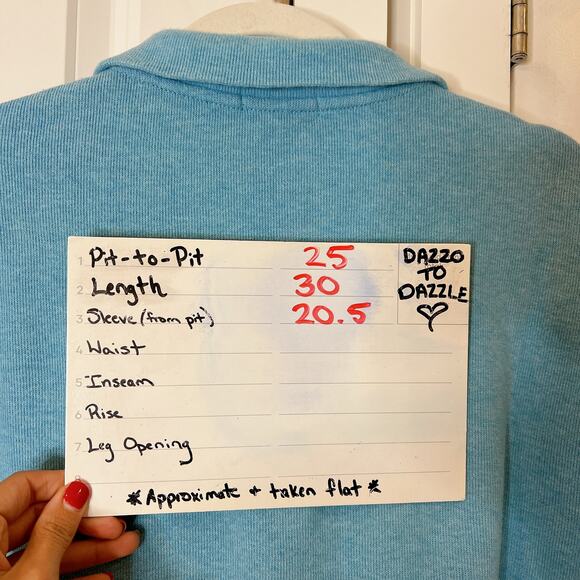 1 Pit-to-Pit 25
2 Length 30
3 Sleeve (from pit) 20.5
4 Waist
5 Inseam
6 Rise
7 Leg Opening
8
*Approximate + taken flat*
DAZZO
TO
DAZZLE
♡